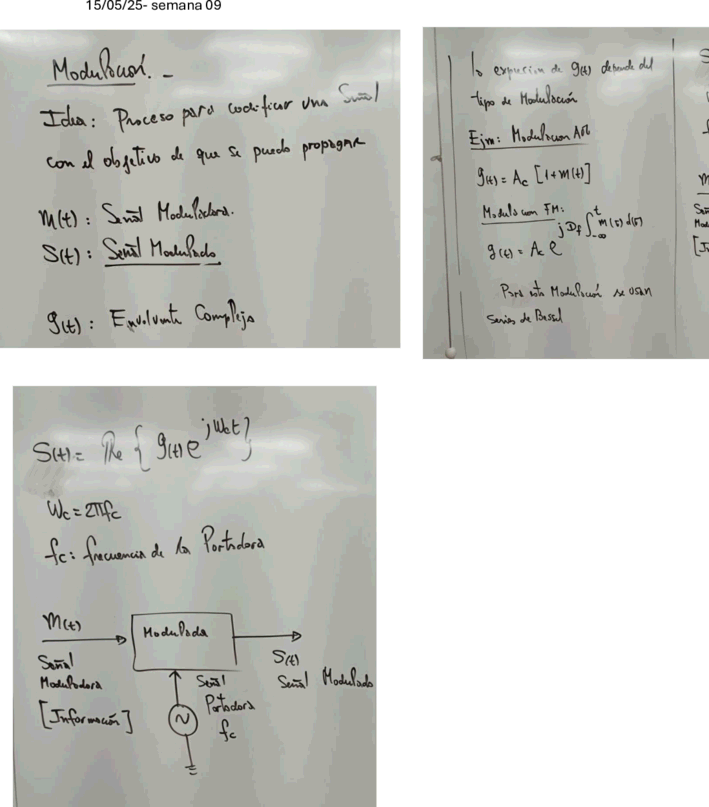 15/05/25- semana 09
Modulación. -
Idea: Proceso para codificar una Señal
con el objetivo de que se pueda propagar
m(t): Señal Moduladora.
S(t): Señal Modulada
g(t): Envolvente Compleja
la expresión de g(t) depende del
tipo de Modulación
Ejm: Modulacion AM
g(t) = Ac [1+m(t)]
Modulacion FM:
g(t) = Ac e^{j Df ∫_{-∞}^{t} m(σ) d(σ)}
Para esta Modulación se usan
Series de Bessel
S
m
Señ
Mod
[In
S(t) = Re { g(t) e^{jWct} }
Wc = 2πfc
fc: frecuencia de la Portadora
m(t)
Modulada
Señal
Moduladora
[Información]
S(t)
Señal Modulada
Señal
Portadora
fc